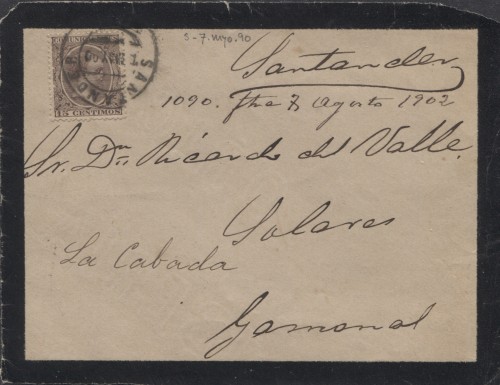 S-7.Myo.90
COMUNICACIONES
SANTANDER
15 CENTIMOS
Santander
1090. fha 7 Agosto 1902
Sr. Dn Ricardo del Valle.
Solares
La Cabada
Gamonal